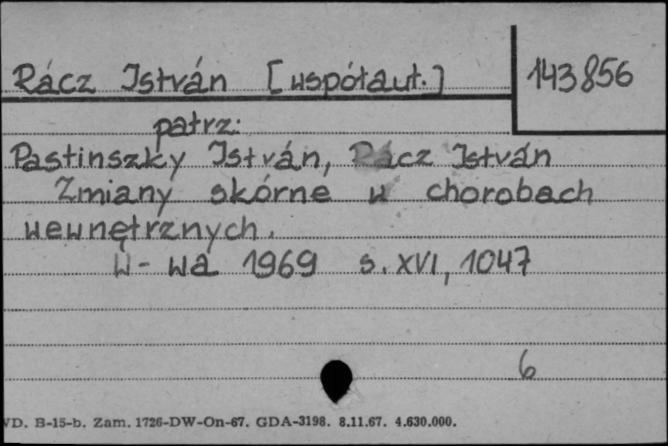 Rácz István [współaut.] 143856
patrz:
Pastinszky István, Rácz István
Zmiany skórne w chorobach
wewnętrznych.
W-wa 1969 s. XVI, 1047
6
VD. B-15-b. Zam. 1726-DW-On-67. GDA-3198. 8.11.67. 4.630.000.